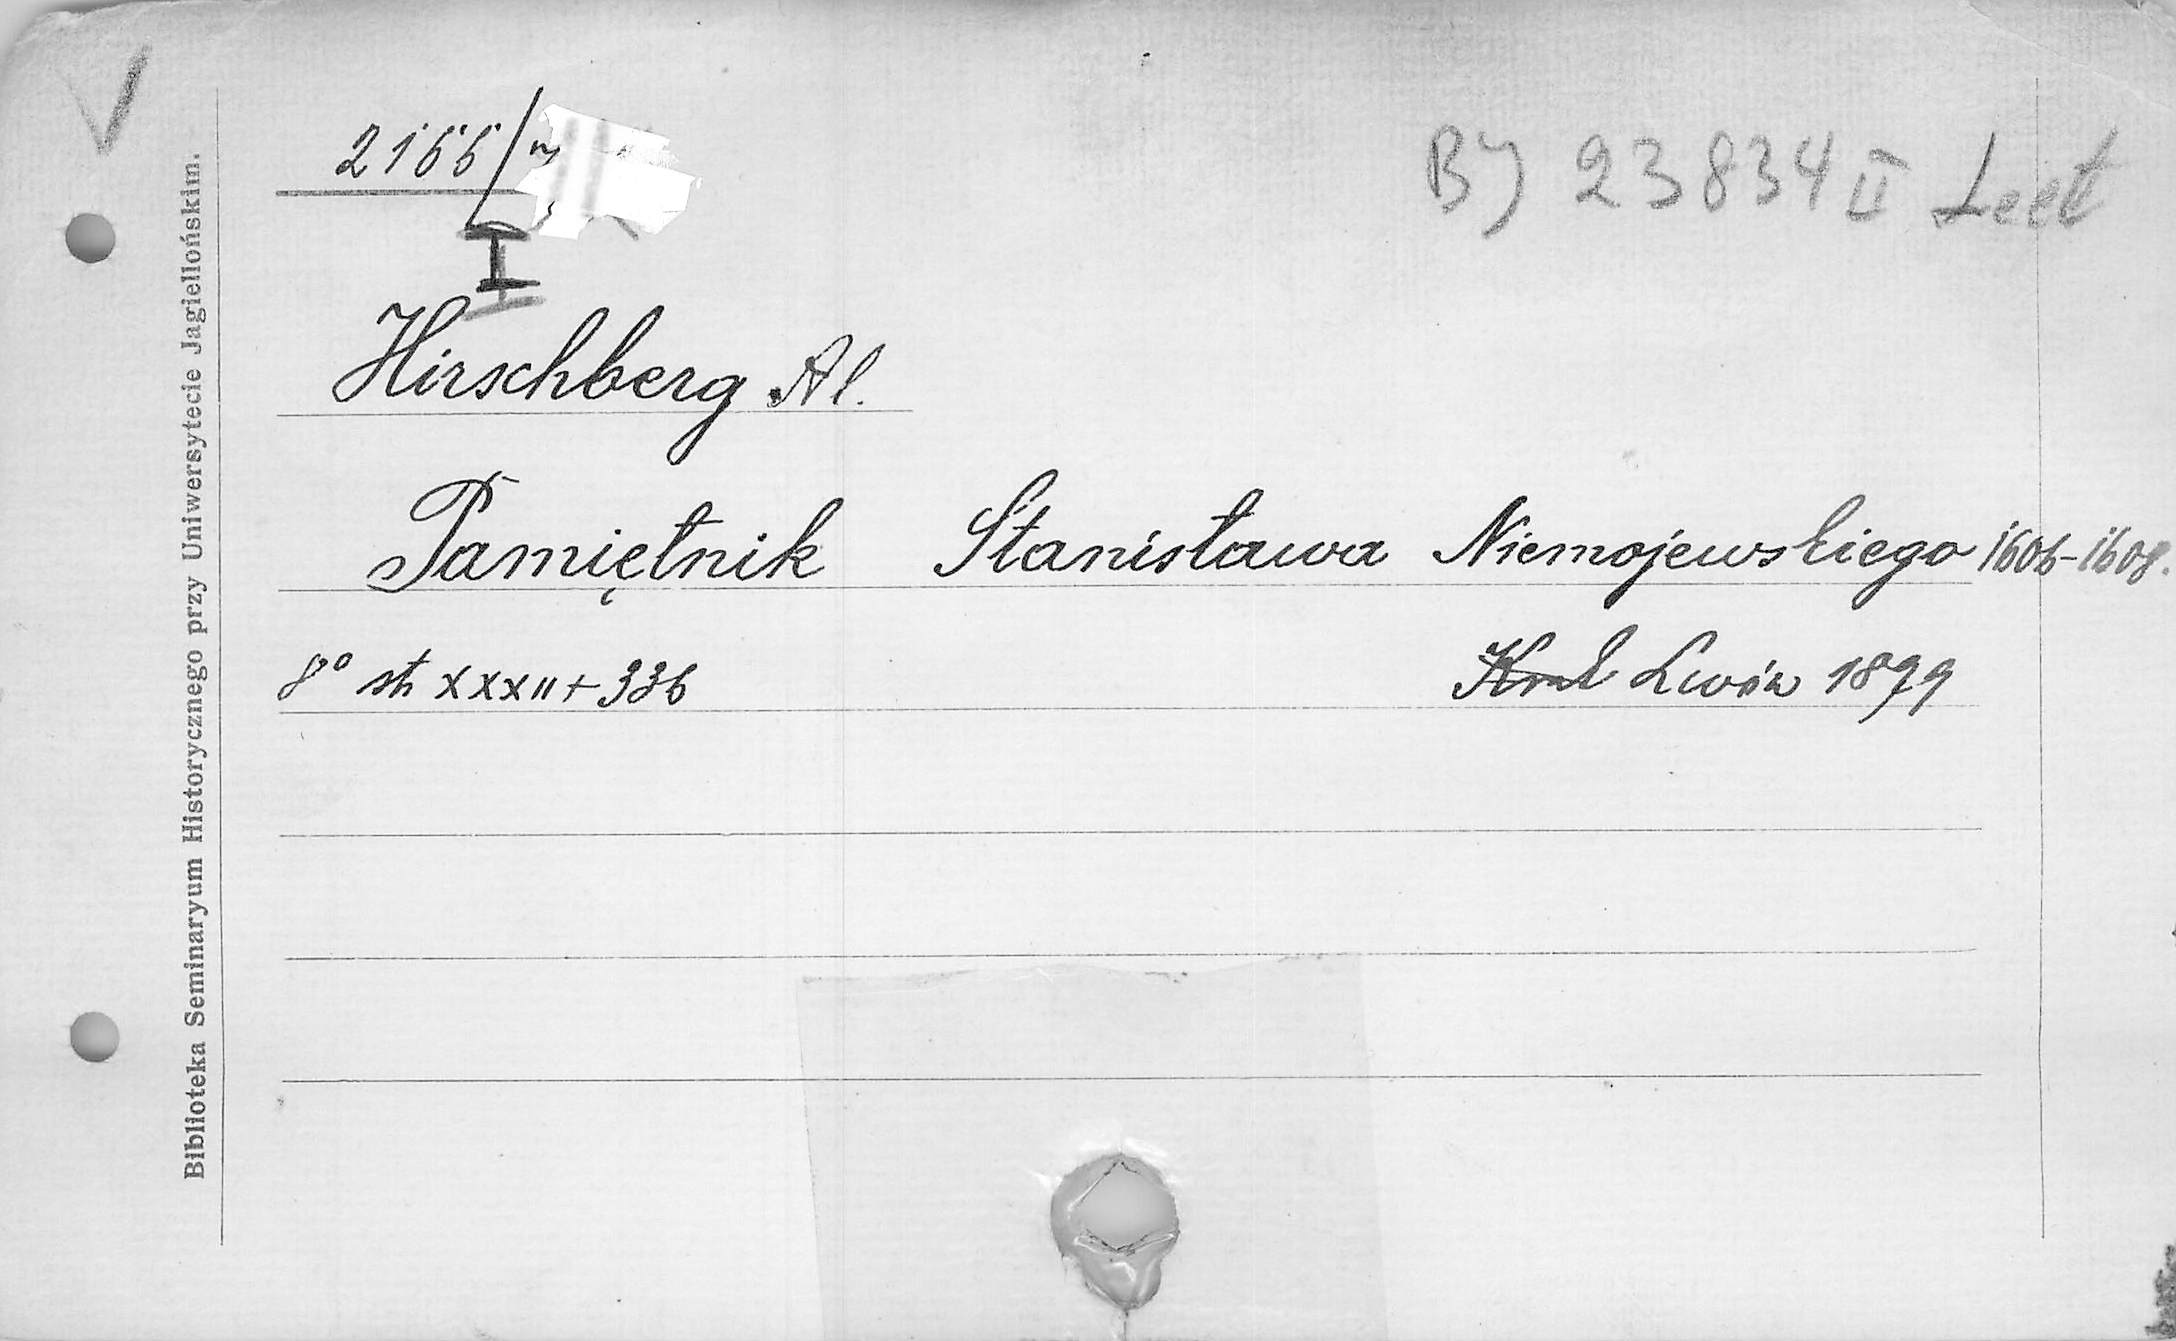 2166/
I
BJ 23834 II Lect
Hirschberg Al.
Pamiętnik Stanisława Niemojewskiego 1606-1608.
8° str XXXII + 336
Lwów 1899
Biblioteka Seminaryum Historycznego przy Uniwersytecie Jagiellońskim.